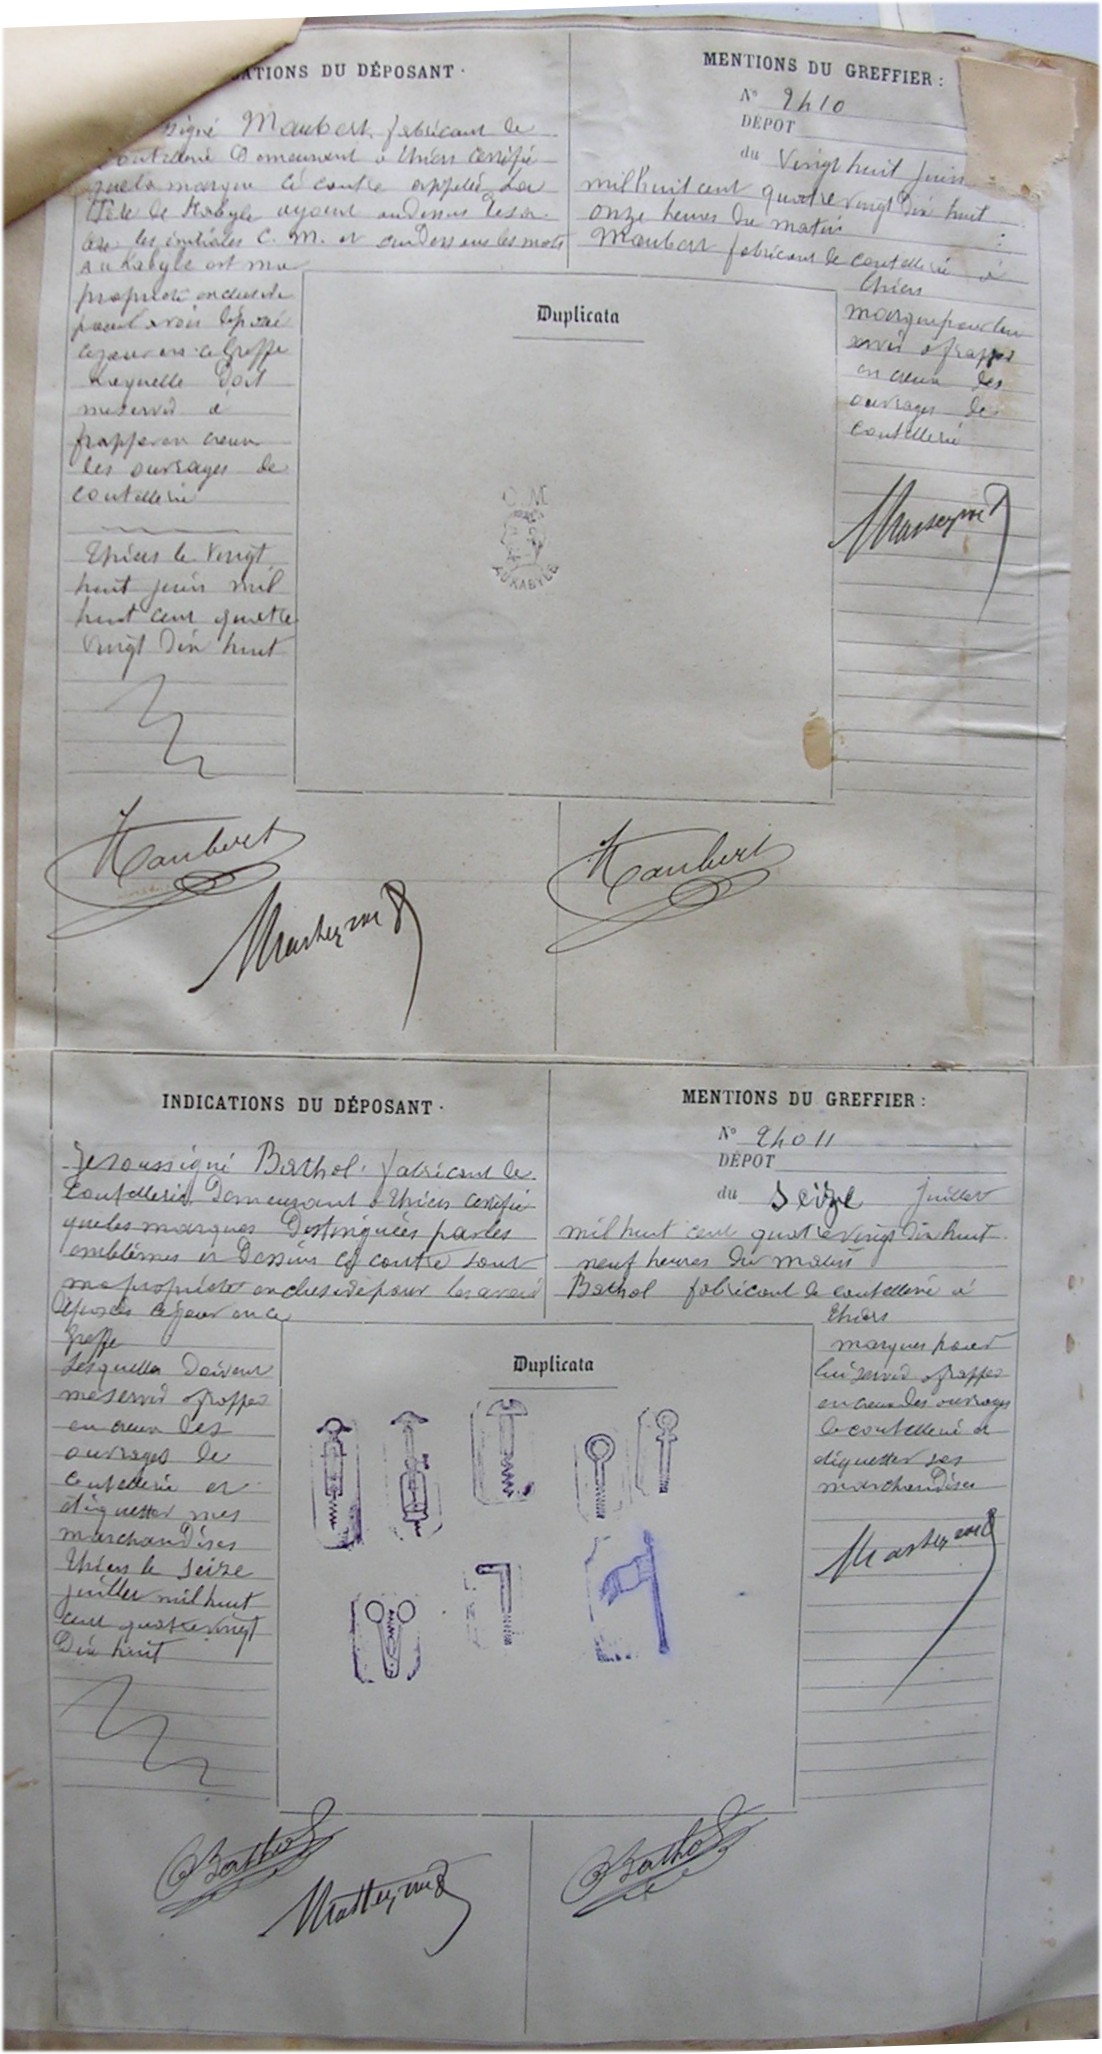 CATIONS DU DÉPOSANT ·
signé Maubert, fabricant de
coutellerie Demeurant à Thiers certifie
que la marque ci contre appelée La
Tête de Kabyle ayant au dessus
les initiales C. M. et au dessous les mots
Au Kabyle est ma
propriété exclusive
pour l'avoir déposé
ce jour en ce Greffe
Laquelle Doit
me servir à
frapper en creux
les ouvrages de
coutellerie
Thiers le Vingt
huit juin mil
huit cent quatre
vingt Dix huit
MENTIONS DU GREFFIER :
N° 2410
DÉPOT
du Vingt huit Juin
mil huit cent quatre vingt Dix huit
onze heures du matin
Maubert fabricant de coutellerie à
Thiers
marque pour lui
servir à frapper
en creux des
ouvrages de
coutellerie
Duplicata
C M
AU KABYLE
Maubert
Maubert
INDICATIONS DU DÉPOSANT ·
Je soussigné Barthol fabricant de
Coutellerie Demeurant à Thiers certifie
que les marques Distinguées par les
emblèmes et Dessins ci contre sont
ma propriété exclusive pour les avoir
déposés ce jour en ce
Greffe
Lesquelles Doivent
me servir à frapper
en creux des
ouvrages de
coutellerie et
étiquetter mes
marchandises
Thiers le seize
juillet mil huit
cent quatre vingt
Dix huit
MENTIONS DU GREFFIER :
N° 24011
DÉPOT
du Seize Juillet
mil huit cent quatre vingt Dix huit
neuf heures du matin
Barthol fabricant de coutellerie à
Thiers
marques pour
lui servir à frapper
en creux des ouvrages
de coutellerie et
étiquetter ses
marchandises
Duplicata
Barthol
Barthol